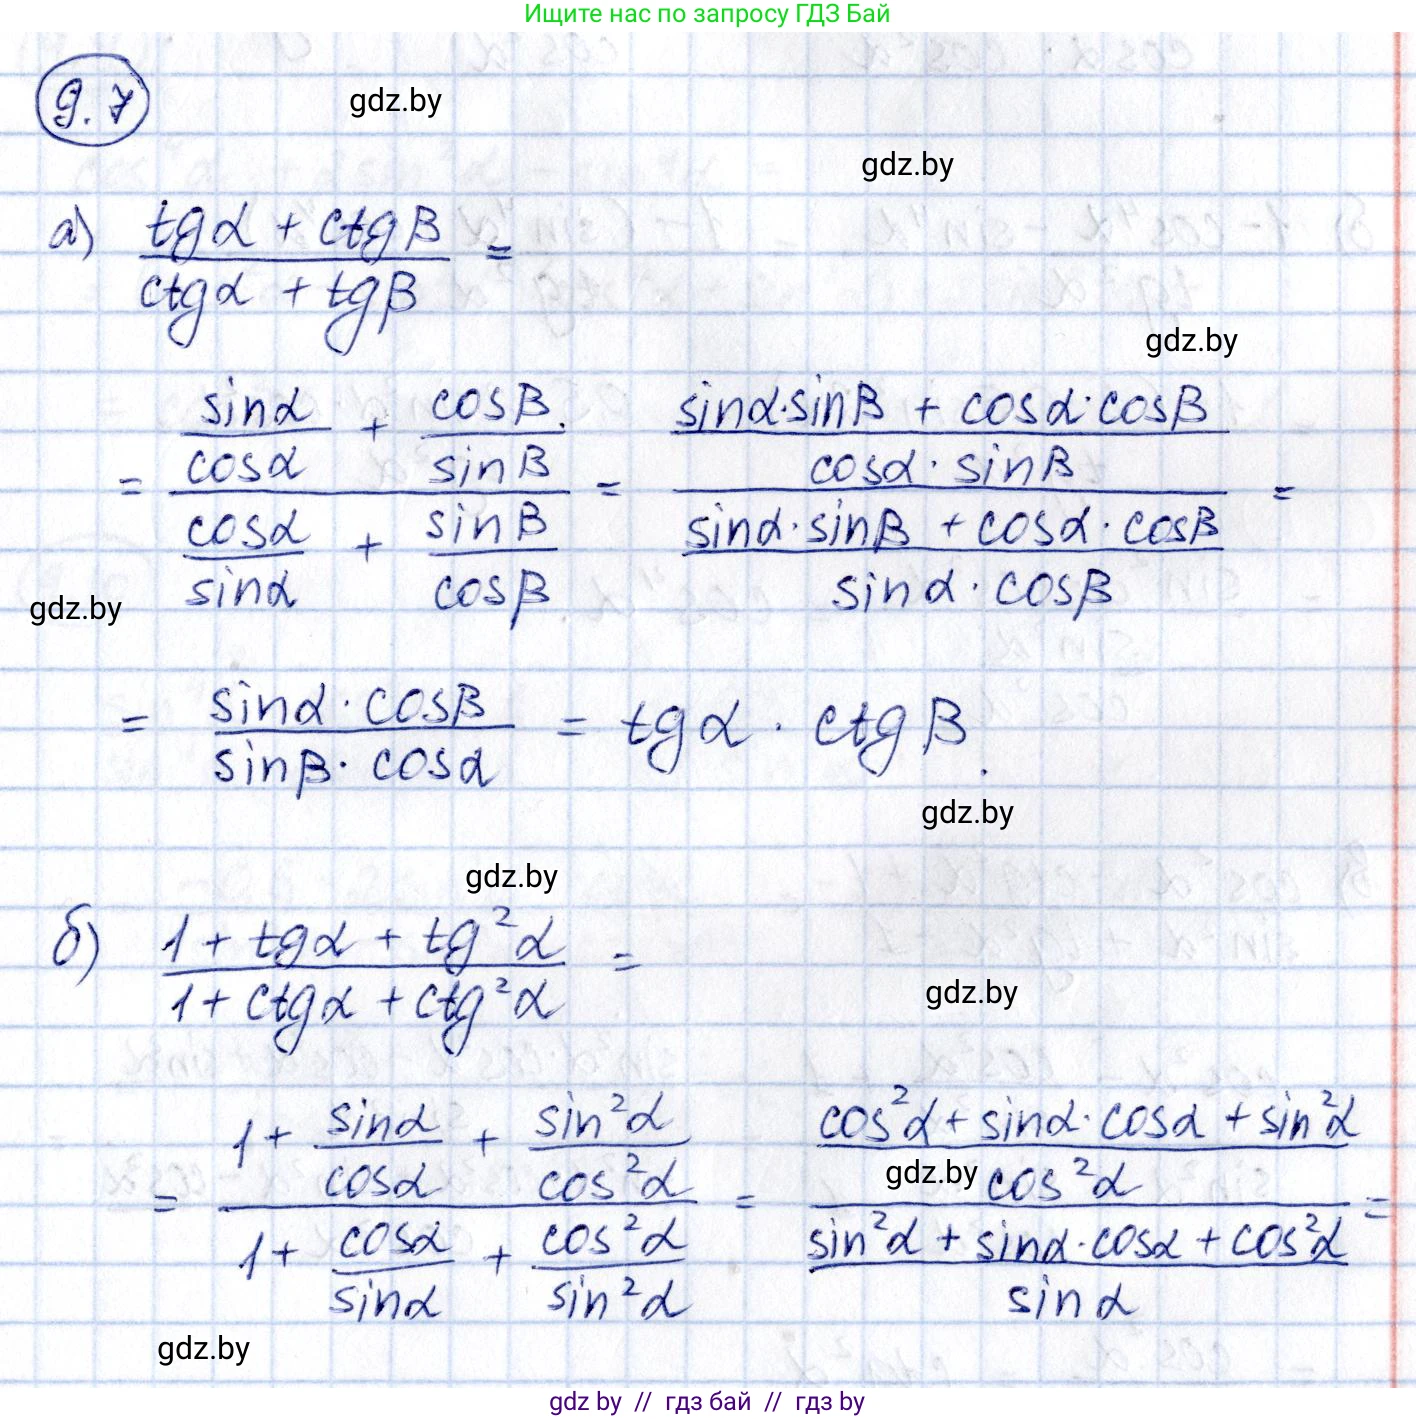 Ищите нас по запросу ГДЗ Бай
9.7
gdz.by
gdz.by
а) (tgα + ctgβ) / (ctgα + tgβ) =
gdz.by
= (sinα/cosα + cosβ/sinβ) / (cosα/sinα + sinβ/cosβ) = ((sinα·sinβ + cosα·cosβ) / (cosα·sinβ)) / ((sinα·sinβ + cosα·cosβ) / (sinα·cosβ)) =
gdz.by
= (sinα·cosβ) / (sinβ·cosα) = tgα · ctgβ.
gdz.by
gdz.by
б) (1 + tgα + tg²α) / (1 + ctgα + ctg²α) =
gdz.by
= (1 + sinα/cosα + sin²α/cos²α) / (1 + cosα/sinα + cos²α/sin²α) = ((cos²α + sinα·cosα + sin²α) / cos²α) / ((sin²α + sinα·cosα + cos²α) / sinα) =
gdz.by
gdz.by
gdz by // гдз бай // гдз by